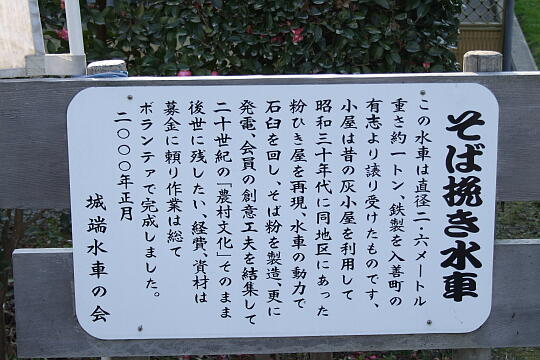 そば挽き水車
この水車は直径二・六メートル
重さ約一トン、鉄製を入善町の
有志より譲り受けたものです、
小屋は昔の灰小屋を利用して
昭和三十年代に同地区にあった
粉ひき屋を再現、水車の動力で
石臼を回し、そば粉を製造、更に
発電、会員の創意工夫を結集して
二十世紀の「農村文化」そのまま
後世に残したい、経費、資材は
募金に頼り作業は総て
ボランテァで完成しました。
二〇〇〇年正月
城端水車の会